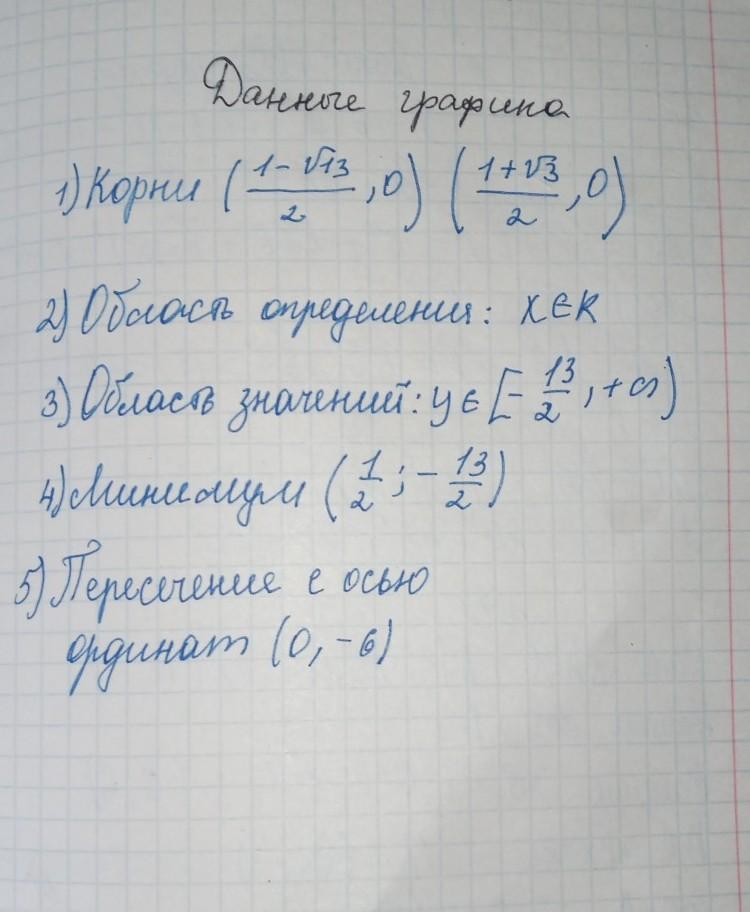 Данные графика
1) Корни (1-√13/2, 0) (1+√3/2, 0)
2) Область определения: x∈R
3) Область значений: y∈[-13/2, +∞)
4) Минимум (1/2; -13/2)
5) Пересечение с осью
ординат (0, -6)